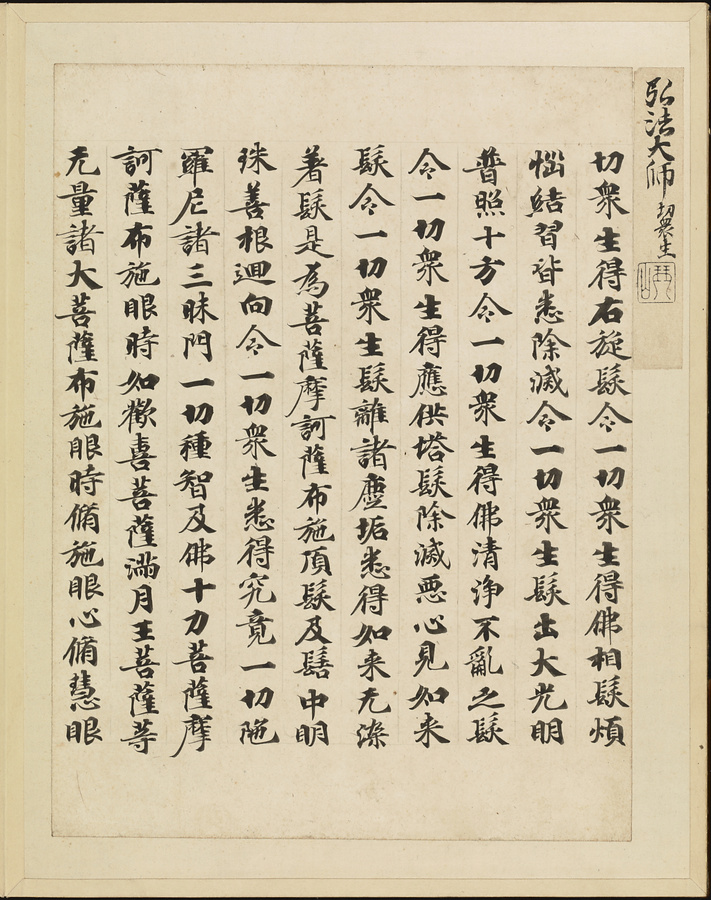 弘法大师 切衆生
切衆生得右旋髮令一切衆生得佛相髮煩
惱結習皆悉除滅令一切衆生髮出大光明
普照十方令一切衆生得佛清浄不亂之髮
令一切衆生得應供塔髮除滅惡心見如来
髮令一切衆生髮離諸塵垢悉得如来无染
著髮是為菩薩摩訶薩布施頂髮及髻中明
珠善根迴向令一切衆生悉得究竟一切陁
羅尼諸三昧門一切種智及佛十力菩薩摩
訶薩布施眼時如歡喜菩薩滿月王菩薩等
无量諸大菩薩布施眼時脩施眼心脩慧眼